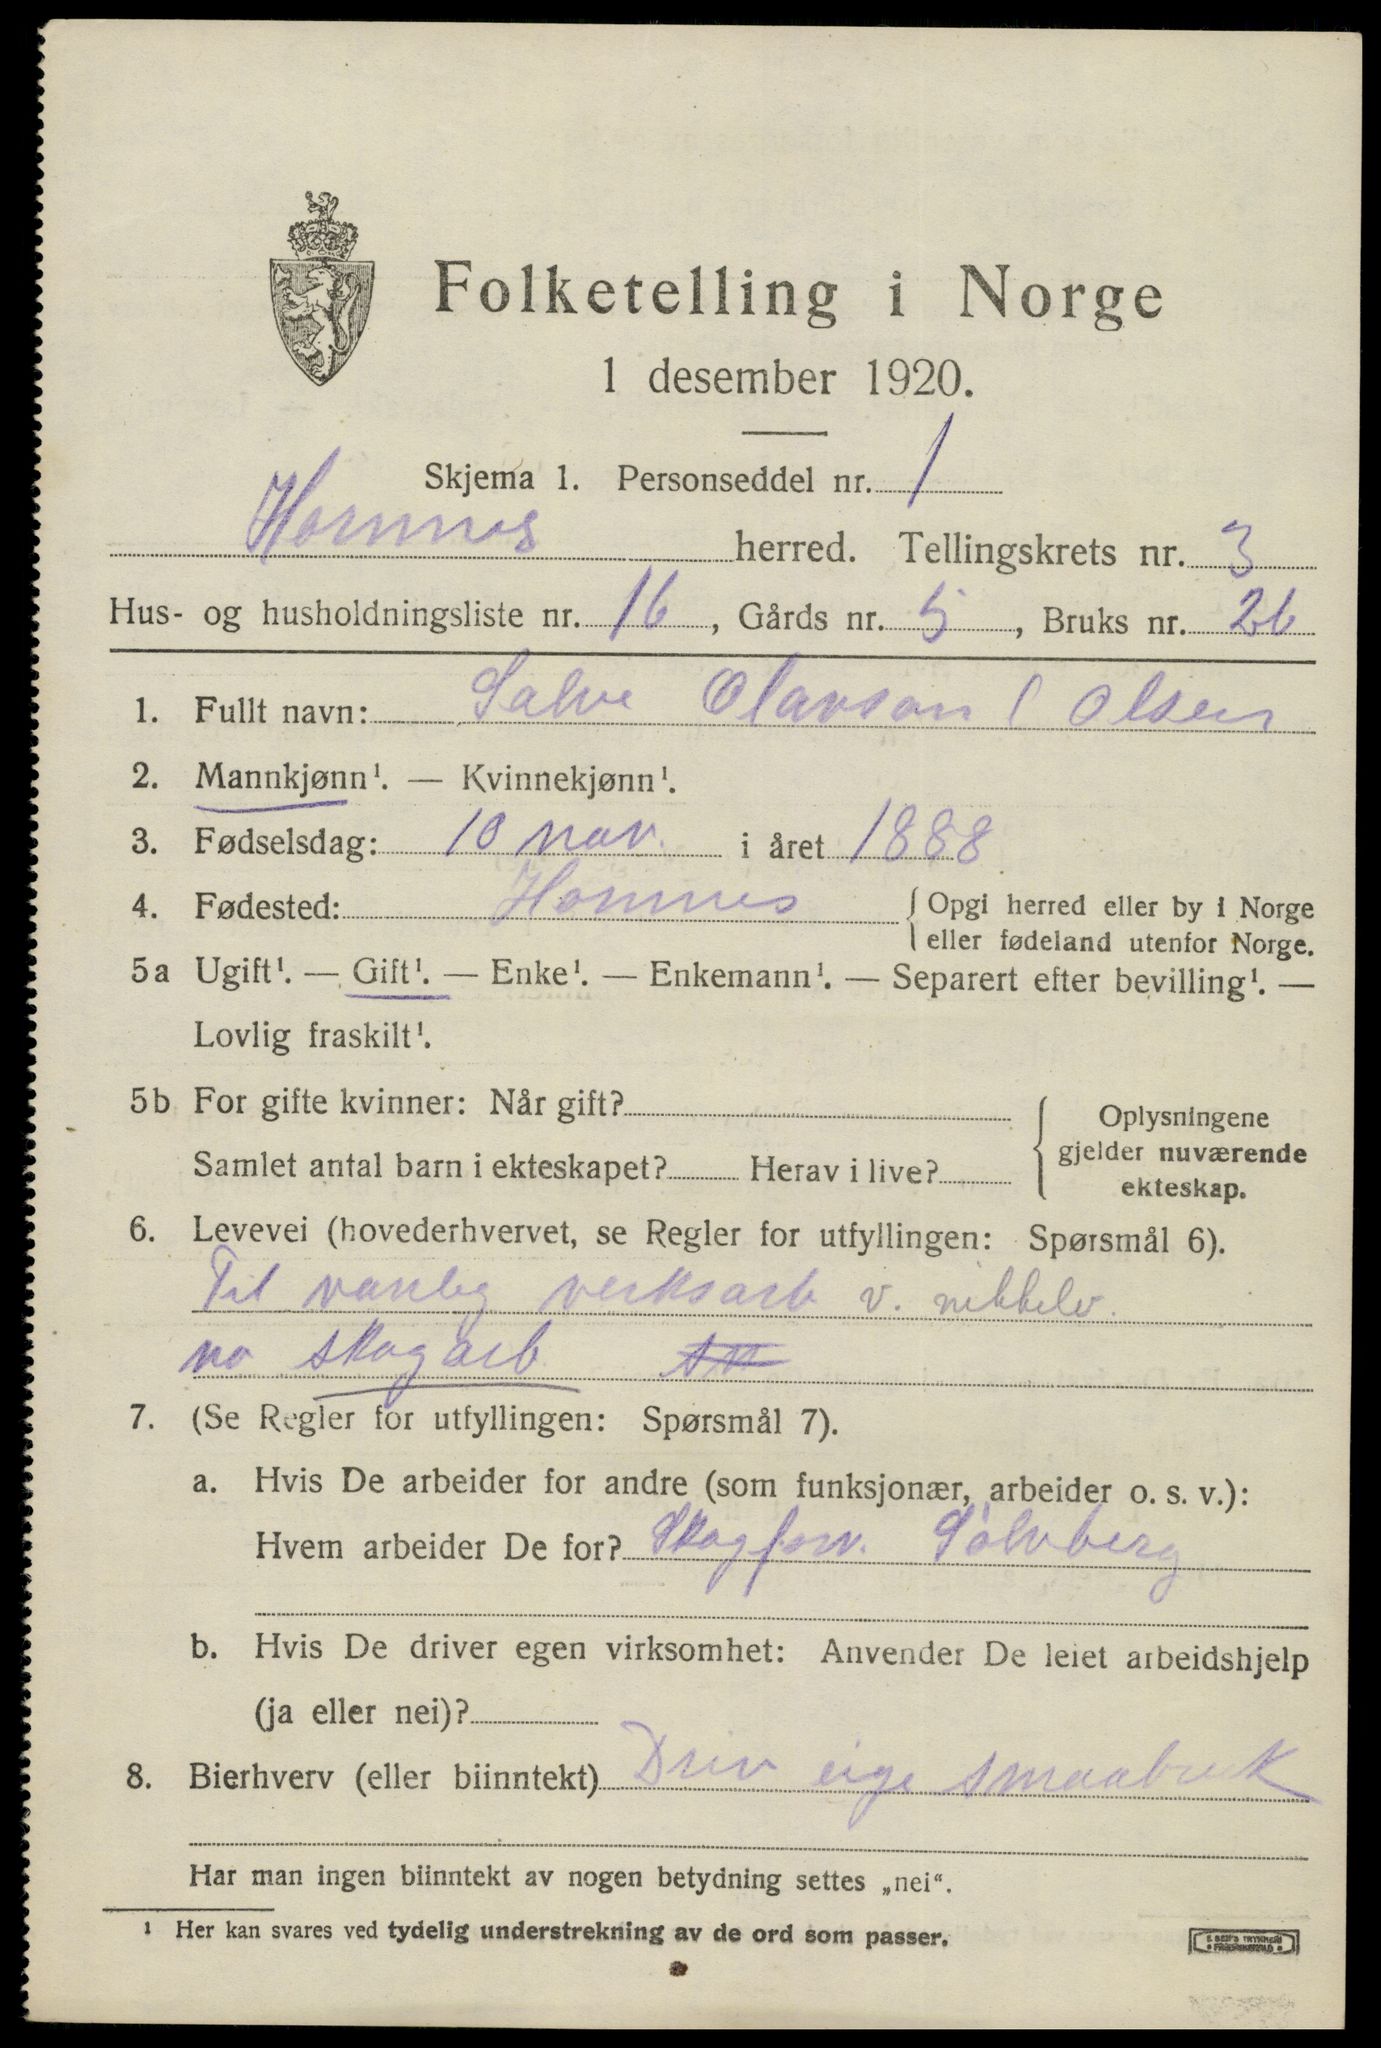 Folketelling i Norge
1 desember 1920.
Skjema 1. Personseddel nr. 1
Hornnes herred. Tellingskrets nr. 3
Hus- og husholdningsliste nr. 16, Gårds nr. 5, Bruks nr. 26
1. Fullt navn: Salve Olavson ( Olsen
2. Mannkjønn¹. — Kvinnekjønn¹.
3. Fødselsdag: 10 nov. i året 1888
4. Fødested: Hornnes { Opgi herred eller by i Norge
eller fødeland utenfor Norge.
5a Ugift¹. — Gift¹. — Enke¹. — Enkemann¹. — Separert efter bevilling¹. —
Lovlig fraskilt¹.
5b For gifte kvinner: Når gift?
Samlet antal barn i ekteskapet? Herav i live?
{ Oplysningene
gjelder nuværende
ekteskap.
6. Levevei (hovederhvervet, se Regler for utfyllingen: Spørsmål 6).
Til vanleg verksarb v. nikkelv.
no skogarb
7. (Se Regler for utfyllingen: Spørsmål 7).
a. Hvis De arbeider for andre (som funksjonær, arbeider o. s. v.):
Hvem arbeider De for? Skogforv. Sølvberg
b. Hvis De driver egen virksomhet: Anvender De leiet arbeidshjelp
(ja eller nei)?
8. Bierhverv (eller biinntekt) Driv eige smaabruk
Har man ingen biinntekt av nogen betydning settes „nei“.
¹ Her kan svares ved tydelig understrekning av de ord som passer.